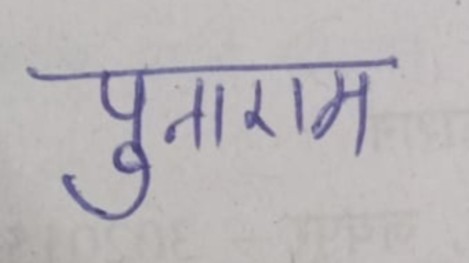 पुनाराम